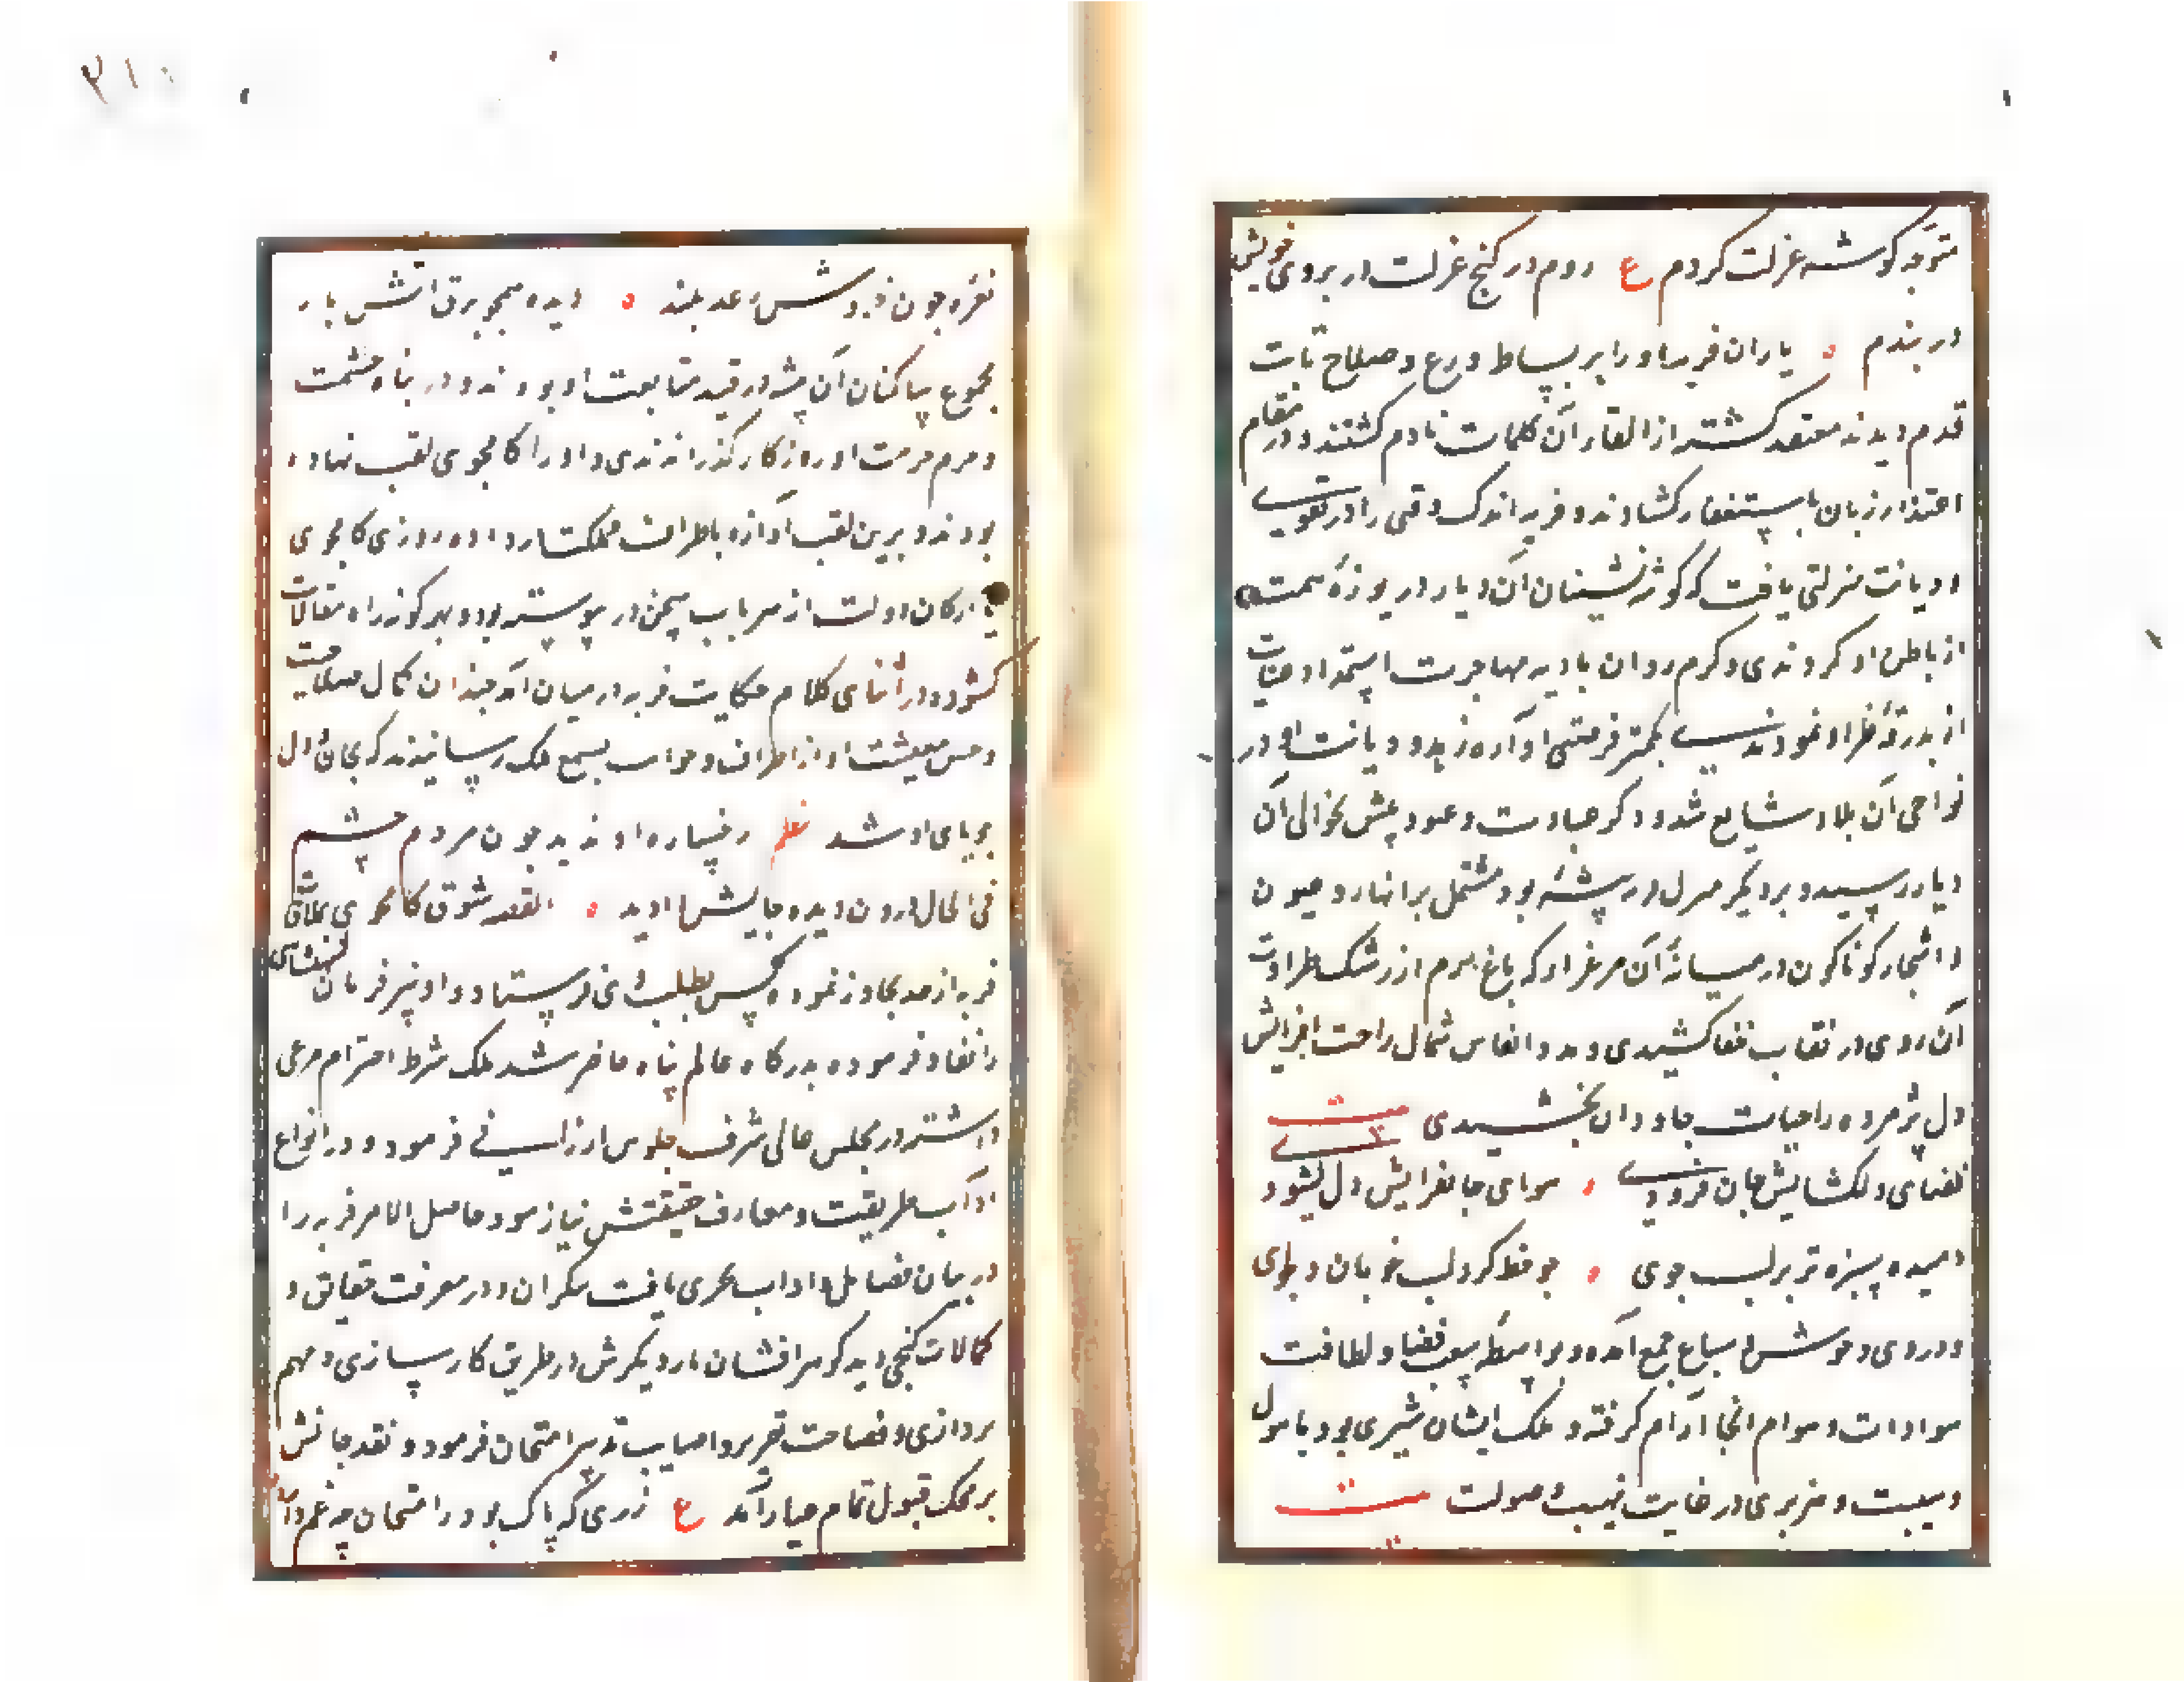 متوجه کوشه عزلت کردم ع روم در کنج عزلت در بروی خویش
در بندم ٥ یاران فریسه را بر بساط ورع و صلاح ثابت
قدم دیدند معتقد کشته از القاء آن کلمات نادم کشتند و در مقام
اعتذار زبان باستغفار کشادند و فریسه اندک وقتی را در تقوی
و دیانت منزلتی یافت که کوشه نشینان آن دیار دریوزهٔ همت
از باطن او کردندی و کرم روان بادیه مهاجرت استمداد عنایت
از بدرقهٔ نظر او نمودندی بکمتر فرصتی آوازه زهد و دیانت او در
نواحی آن بلاد شایع شد و ذکر عبادت و عبودیتش بحوالی آن
دیار رسید و بردیکر منزل او بیشهٔ بود مشتمل بر انهار و عیون
و اشجار کوناکون در میانهٔ آن مرغزار که باغ ارم از رشک طراوت
آن روی در نقاب خفا کشیدی و مدد انفاس شمال راحت افزایش
دل پژمرده را حیات جاودان بخشیدی بیت
فضای دلکشایش جان فزودی ٥ هوای جانفزایش دل ربودی
دمیده سبزه تر بر لب جوی ٥ چو خط کرد لب خوبان دلجوی
و در وی وحوش و سباع جمع آمده و بواسطه سعت فضا و لطافت
هوا دات و هوام انجا آرام کرفته و ملک ایشان شیری بود با هول
و هیبت و هزبری در غایت نهیب و صولت بیت
۳۱۰
نعره چون در خروش رعد بلند ٥ دیده همچو برق آتش بار
مجموع ساکنان آن بیشه در قید متابعت او بودند و در پناه حشمت
و حرم حرمت او روزکار کذرانندی و او را کامجوی لقب نهاده
بودند و برین لقب آوازه باطراف مملکت در داده روزی کامجوی
با ارکان دولت از هر باب سخن در پیوسته بود و بهر کونه راه مقالات
کشوده در اثنای کلام حکایت فریسه در میان آمد چندان کمال صلاحیت
و حسن معیشت او از اطراف و جوانب بسمع ملک رسانیدند که بجان و دل
جویای او شد نظم رخساره او ندید چون مردم چشم
فی الحال درون دیده جایش را دید ٥ القصه شوق کامجوی بملاقات
فریسه از حد تجاوز نموده کس بطلب وی فرستاد و او نیز فرمان شهنشاهی
را انقیاد فرموده بدرکاه عالم پناه حاضر شد ملک شرط احترام مرعی
داشته در مجلس عالی شرف جلوس ارزانی فرمود و در انواع
آداب طریقت و معارف حقیقتش نیاز مود حاصل الامر فریسه را
در بیان فضایل و اداب بحری یافت بیکران و در معرفت حقایق و
کمالات کنجی دید کوهر افشان بار دیکرش در طریق کار سازی و مهم
پردازی و فصاحت تقریر و اصابت تدبیر امتحان فرمود و نقد جانش
بر محک قبول تمام عیار آمد ع زری که پاک بود در امتحان چه غم دارد